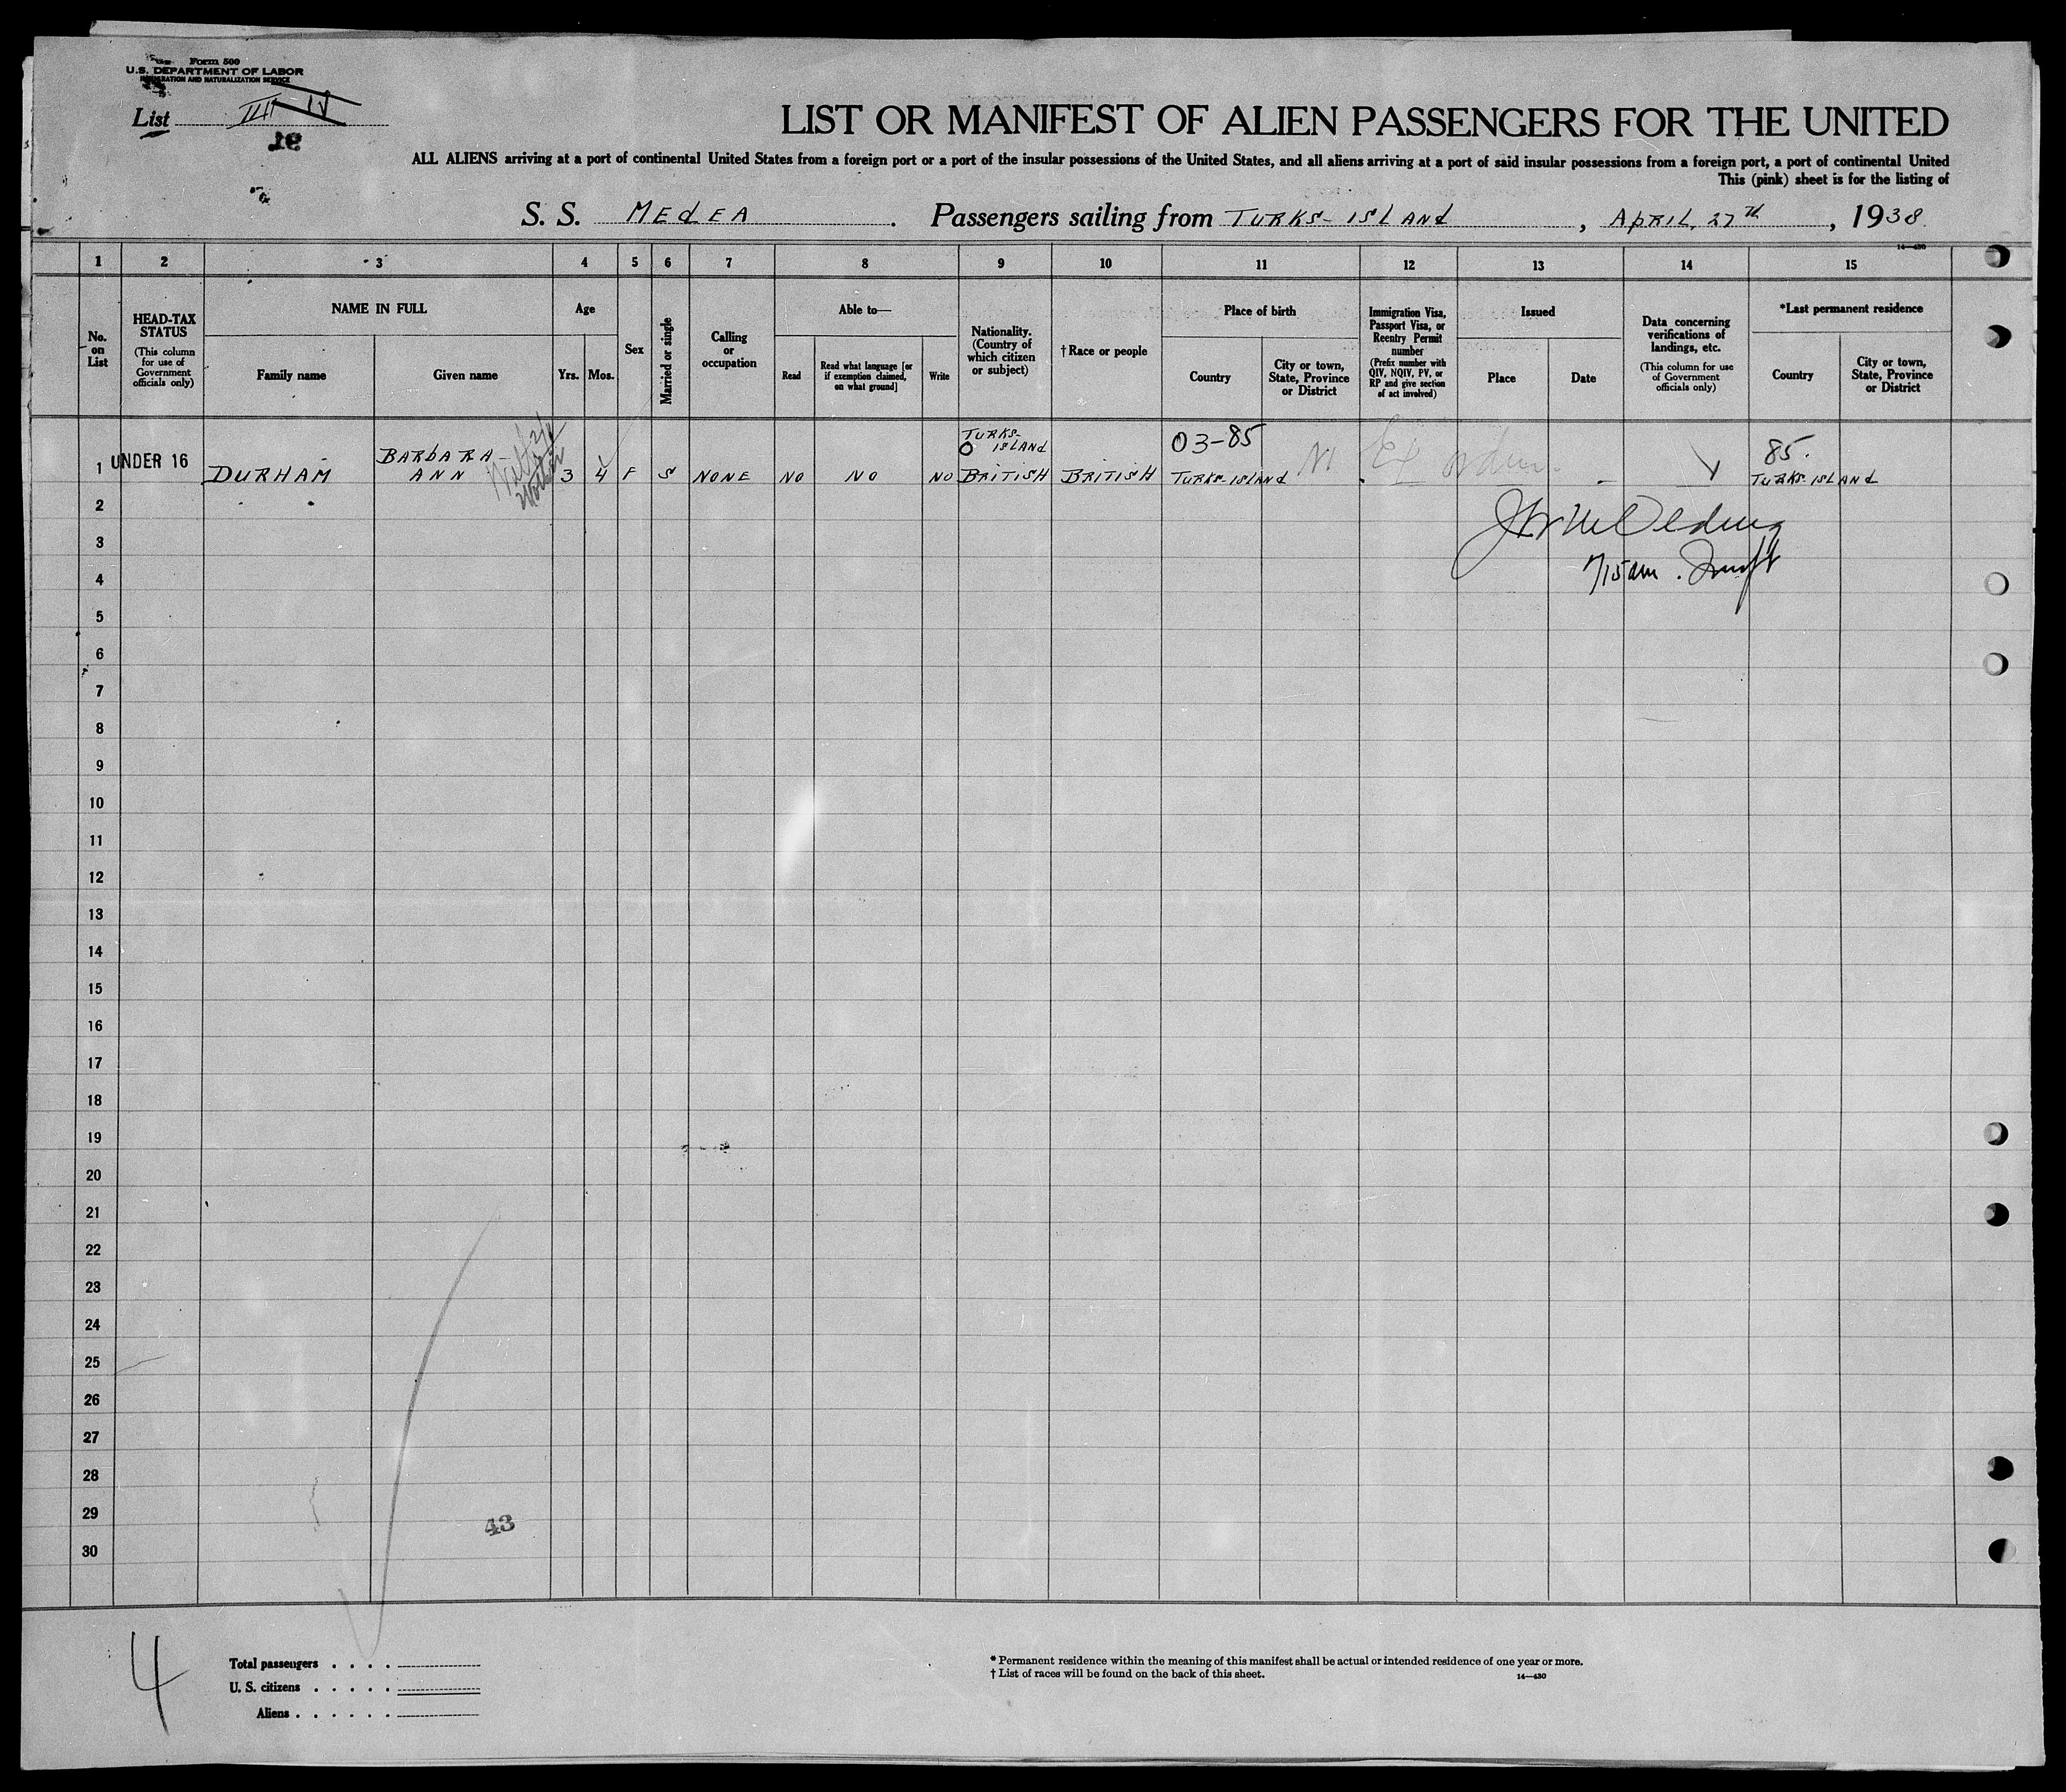 Form 500
U.S. DEPARTMENT OF LABOR
IMMIGRATION AND NATURALIZATION SERVICE
List
16
LIST OR MANIFEST OF ALIEN PASSENGERS FOR THE UNITED
ALL ALIENS arriving at a port of continental United States from a foreign port or a port of the insular possessions of the United States, and all aliens arriving at a port of said insular possessions from a foreign port, a port of continental United
This (pink) sheet is for the listing of
S. S. MEdEA. Passengers sailing from TURKS-ISLANd, APRIL, 27th, 1938.
14—430
1 2 3 4 5 6 7 8 9 10 11 12 13 14 15
No. on List
HEAD-TAX STATUS
(This column for use of Government officials only)
NAME IN FULL
Family name
Given name
Age
Yrs.
Mos.
Sex
Married or single
Calling or occupation
Able to—
Read
Read what language [or if exemption claimed, on what ground]
Write
Nationality. (Country of which citizen or subject)
†Race or people
Place of birth
Country
City or town, State, Province or District
Immigration Visa, Passport Visa, or Reentry Permit number
(Prefix number with QIV, NQIV, PV, or RP and give section of act involved)
Issued
Place
Date
Data concerning verifications of landings, etc.
(This column for use of Government officials only)
*Last permanent residence
Country
City or town, State, Province or District
TURKS-
ISLANd
03-85
85.
1 UNDER 16 DURHAM BARbARA ANN 3 4 F S NONE NO NO NO BRITISH BRITISH TURKS-ISLANd TURKS-ISLANd
With
Mother
2
3
7/15 am.
4
5
6
7
8
9
10
11
12
13
14
15
16
17
18
19
20
21
22
23
24
25
26
27
28
29
43
30
4
Total passengers . . . .
U. S. citizens . . . . .
Aliens . . . . . .
* Permanent residence within the meaning of this manifest shall be actual or intended residence of one year or more.
† List of races will be found on the back of this sheet.
14—430